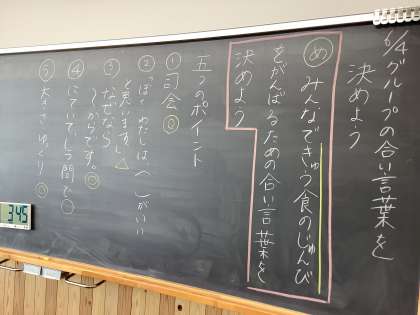 6/4 グループの合い言葉を
決めよう
め みんなできゅう食のじゅんび
をがんばるための合い言葉を
決めよう
五つのポイント
① 司会 ◎
② ぼく・わたしは(〜)がいい
と思います。△
③ なぜなら
〜からです。◎
④ にていて、しつ問で ○
⑤ 大きさ ゆっくり ◎
345